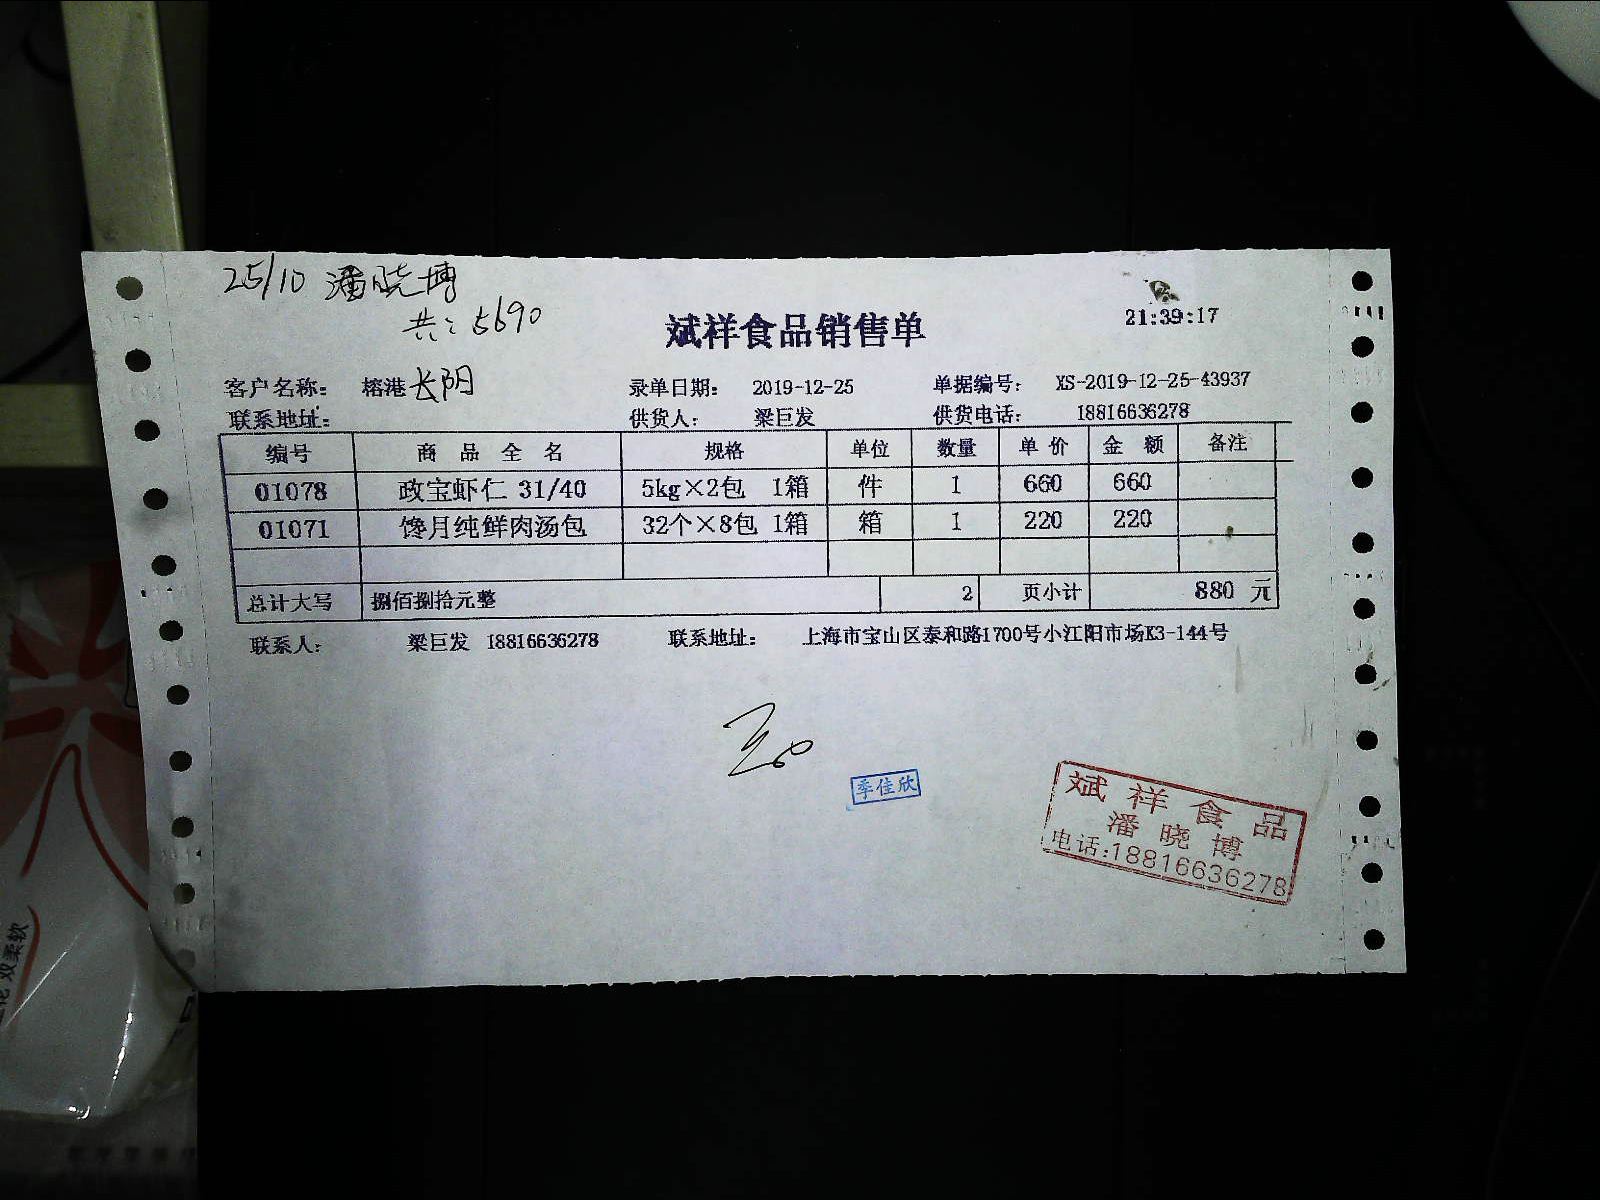 25/10 潘晓博
共:5690
斌祥食品销售单
21:39:17
客户名称: 榕港 长阴 录单日期: 2019-12-25 单据编号: XS-2019-12-25-43937
联系地址: 供货人: 梁巨发 供货电话: 18816636278
编号 商品全名 规格 单位 数量 单价 金额 备注
01078 政宝虾仁 31/40 5kg×2包 1箱 件 1 660 660
01071 馋月纯鲜肉汤包 32个×8包 1箱 箱 1 220 220
总计大写 捌佰捌拾元整 2 页小计 880 元
联系人: 梁巨发 18816636278 联系地址: 上海市宝山区泰和路1700号小江阳市场K3-144号
季佳欣
斌祥食品
潘晓博
电话:18816636278
双柔软